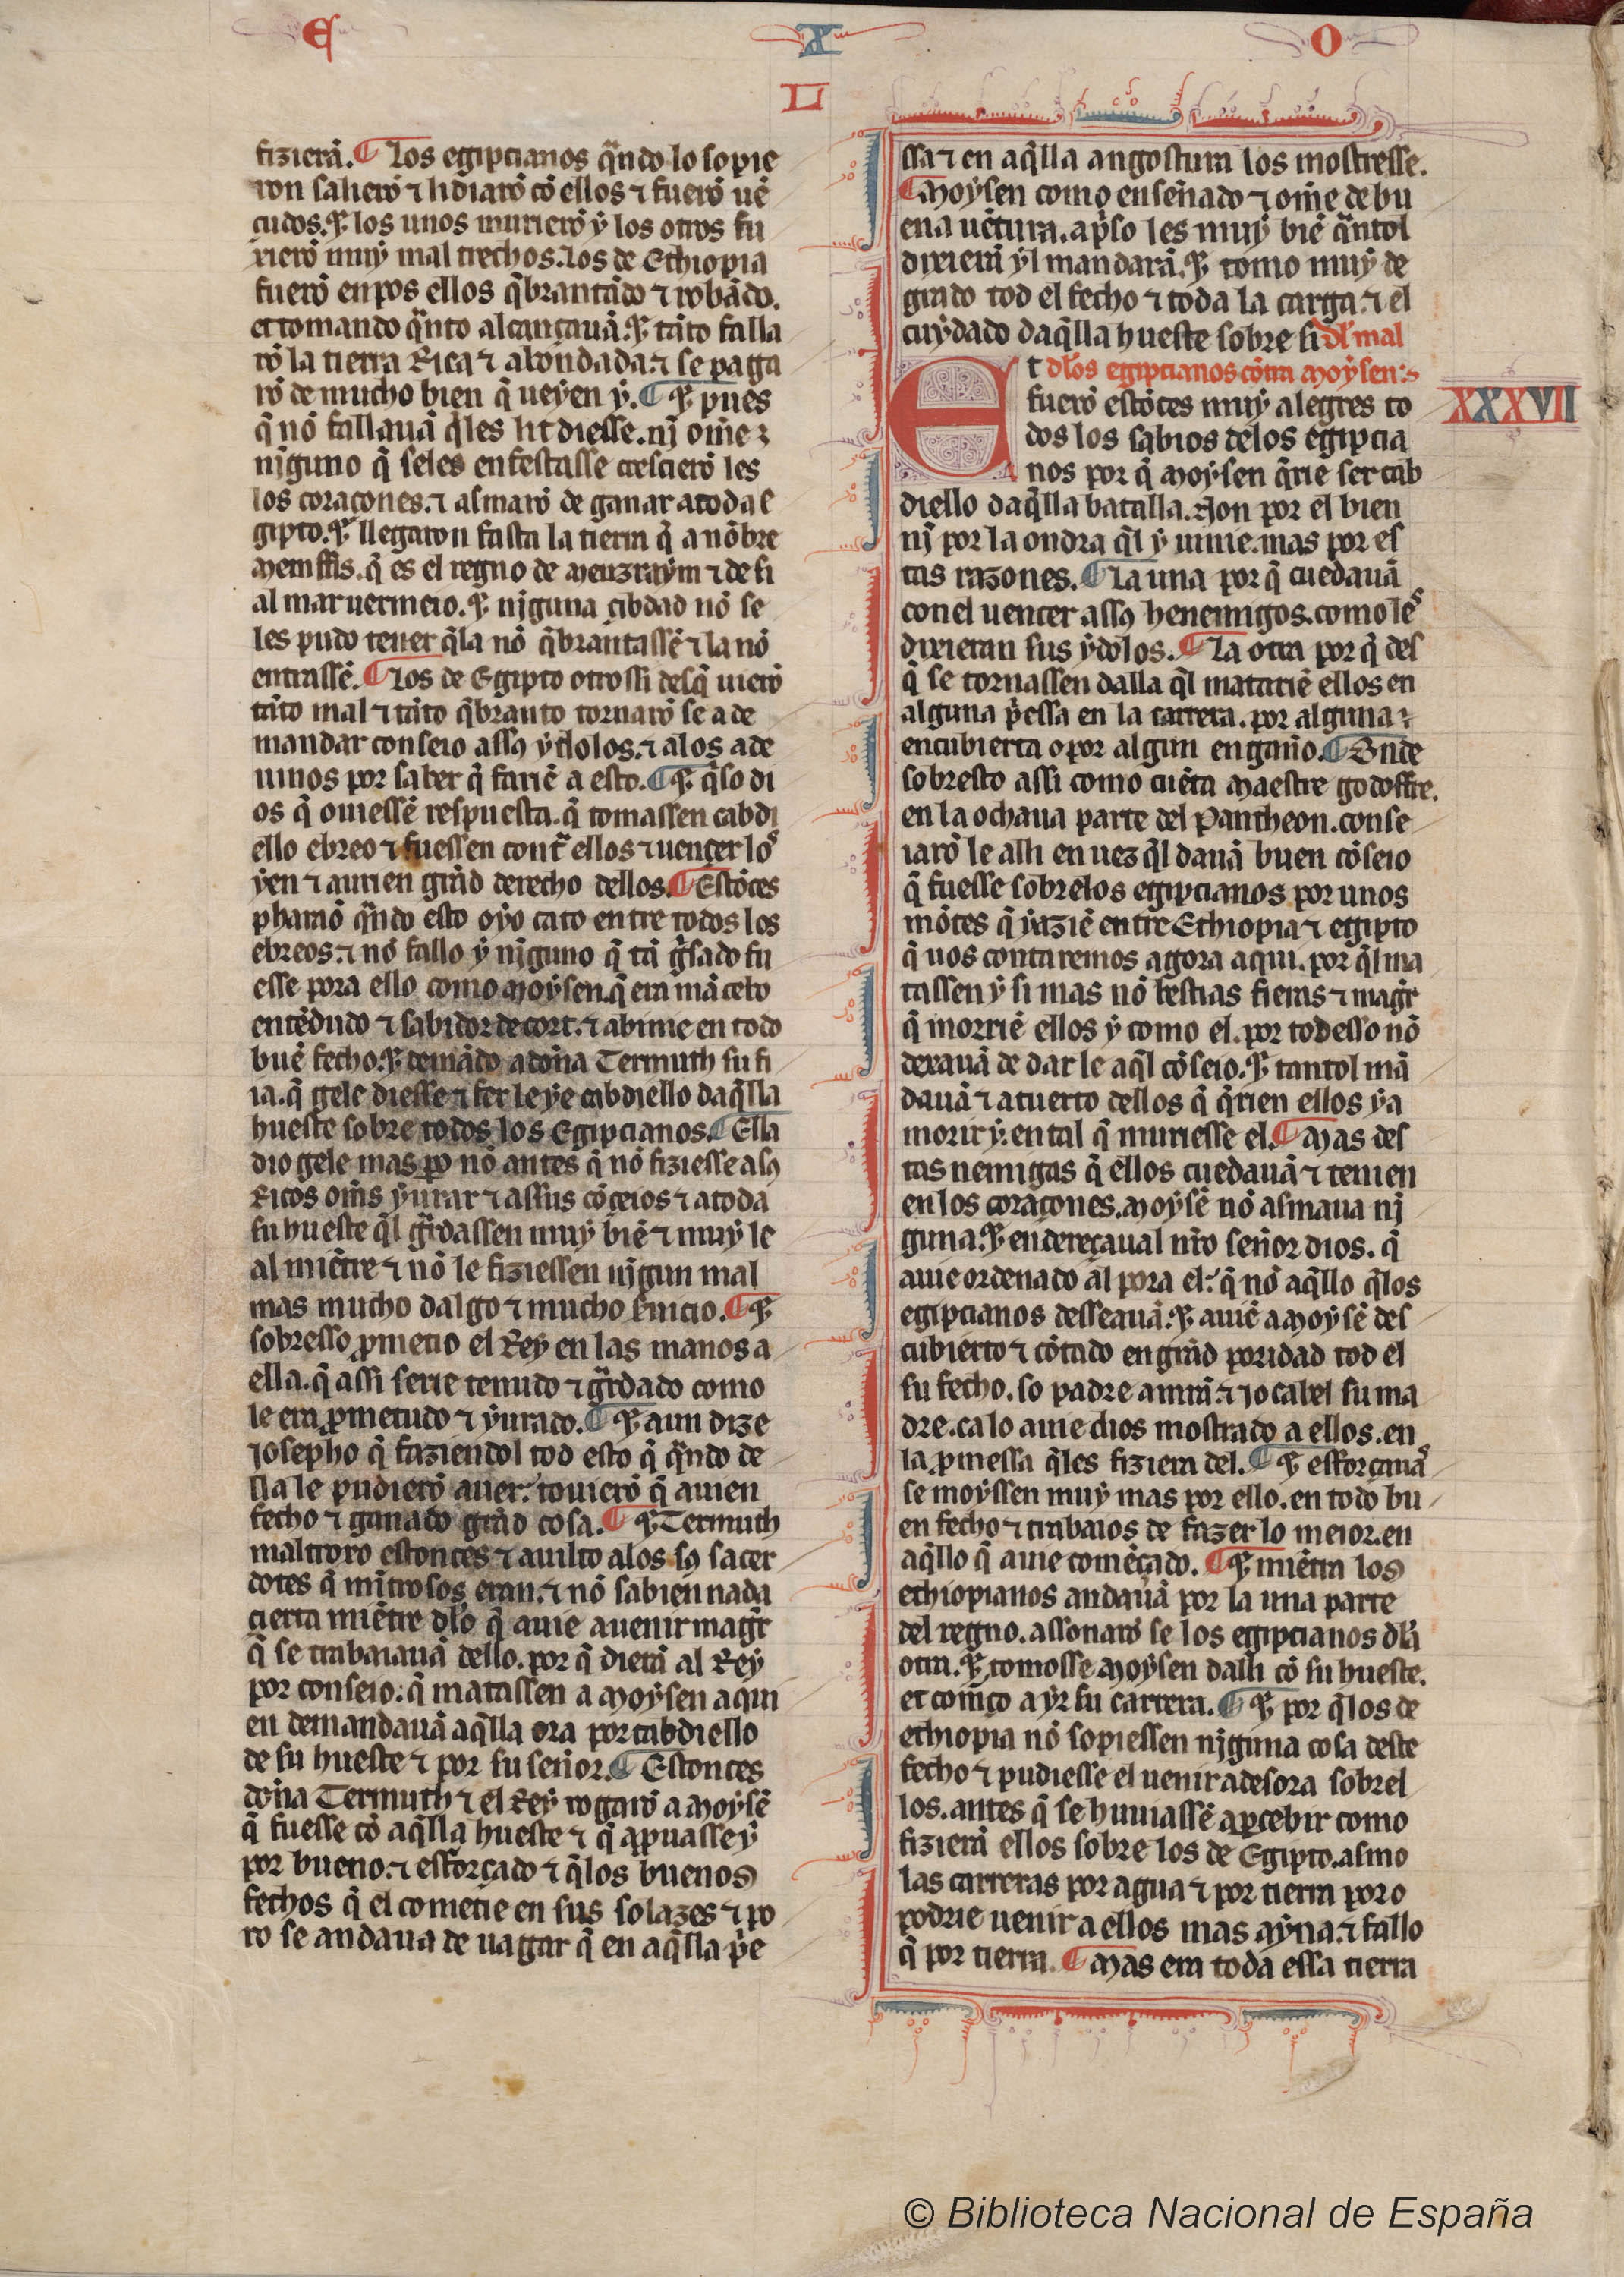 E X O
II
fizierã. ¶ Los egipcianos q̃ndo lo sopie
ron salierõ ⁊ lidiarõ cõ ellos ⁊ fuerõ uẽ
çudos. ⁊ los unos murierõ ẏ los otros fu
xierõ muẏ mal trechos. los de Ethiopia
fuerõ enpos ellos q̃brantãdo ⁊ robãdo.
et tomando q̃nto alcançauã. ⁊ tãto falla
rõ la tierra Rica ⁊ abondada. ⁊ se paga
rõ de mucho bien q̃ ueẏen ẏ. ¶ ⁊ pues
q̃ nõ fallauã q̃les lit diesse. nj om̃e
njnguno q̃ seles enfestasse crescierõ les
los coraçones. ⁊ asmarõ de ganar atoda e
gipto. ⁊ llegaron fasta la tierra q̃ a nõbre
Memffis. q̃ es el regno de Meuzraẏm ⁊ de si
al mar uermeio. ⁊ njguna çibdad nõ se
les pudo tener q̃la nõ q̃brantassẽ ⁊ la nõ
entrassẽ. ¶ Los de Egipto otrossi desq̃ uierõ
tãto mal ⁊ tãto q̃branto tornarõ se a de
mandar conseio assꝰ ẏdolos. ⁊ alos ade
uinos por saber q̃ fariẽ a esto. ¶ ⁊ q̃so di
os q̃ ouiessẽ respuesta. q̃ tomassen cabdi
ello ebreo ⁊ fuessen contr̃ ellos ⁊ uençer los
ẏen ⁊ aurien grãd derecho dellos. ¶ Estõces
pharaõ q̃ndo esto oẏo cato entre todos los
ebreos. ⁊ nõ fallo ẏ njguno q̃ tã g̃sado fu
esse pora ello como Moẏsen. q̃ era mãcebo
entẽdudo ⁊ sabidor de cort. ⁊ abinie en todo
buẽ fecho. ⁊ demãdo a doña Termuth su fi
ia. q̃ gele diesse ⁊ fer le ẏe cabdiello daq̃lla
hueste sobre todos los Egipcianos. ¶ Ella
dio gele mas ꝑo nõ antes q̃ nõ fiziesse asꝰ
Ricos om̃s ẏurar ⁊ assus cõçeios ⁊ atoda
su hueste q̃l g̃rdassen muẏ biẽ ⁊ muẏ le
al miẽtre ⁊ nõ le fiziessen njgun mal
mas mucho dalgo ⁊ mucho ẽuicio. ¶ ⁊
sobresso ꝓmetio el Reẏ en las manos a
ella. q̃ assi serie tenudo ⁊ g̃rdado como
le era ꝓmetudo ⁊ ẏurado. ¶ ⁊ aun dize
Josepho q̃ faziendol tod esto q̃ q̃ndo de
lla le pudierõ auer. touierõ q̃ auien
fecho ⁊ ganado grãd cosa. ¶ ⁊ Termuth
maltroxo estonces ⁊ auilto alos sꝰ sacer
dotes q̃ mĩtrosos eran. ⁊ nõ sabien nada
çierta miẽtre dlo q̃ auie auenir magr̃
q̃ se trabaiauã dello. por q̃ dierã al Reẏ
por conseio: q̃ matassen a Moẏsen aqui
en demandauã aq̃lla ora por cabdiello
de su hueste ⁊ por su señor. ¶ Estonces
doña Termuth ⁊ el Reẏ rogarõ a Moẏsẽ
q̃ fuesse cõ aq̃lla hueste ⁊ q̃ aprouasse ẏ
por bueno. ⁊ esforçado ⁊ q̃los buenos
fechos q̃ el cometie en sus solazes ⁊ po
ro se andaua de uagar q̃ en aq̃lla p̃e
ssa ⁊ en aq̃lla angostura los mostresse.
¶ Moẏsen como enseñado ⁊ om̃e de bu
ena uẽtura. ap̃so les muẏ biẽ q̃ntol
dixierã ẏl mandarã. ⁊ tomo muẏ de
grado tod el fecho ⁊ toda la carga. ⁊ el
cuẏdado daq̃lla hueste sobre si dl mal
t dlos egipcianos cõtra Moẏsen:
XXXVII
E fuerõ estõces muẏ alegres to
dos los sabios delos egipcia
nos por q̃ Moẏsen q̃rie ser cab
diello daq̃lla batalla. Non por el bien
nj por la ondra q̃l ẏ uinie. mas por es
tas razones. ¶ La una por q̃ cuedauã
con el uencer assꝰ henemigos. como les
dixieran sus ẏdolos. ¶ La otra por q̃ des
q̃ se tornassen dalla q̃l matariẽ ellos en
alguna p̃essa en la carrera. por alguna
encubierta o por algun engaño. ¶ Onde
sobresto assi como cuẽta Maestre godoffre.
en la ochaua parte del Pantheon. conse
iarõ le alli en uez q̃l dauã buen cõseio
q̃ fuesse sobrelos egipcianos por unos
mõtes q̃ ẏaziẽ entre Ethiopia ⁊ egipto
q̃ uos contaremos agora aqui. por q̃l ma
tassen ẏ si mas nõ bestias fieras ⁊ magr̃
q̃ morriẽ ellos ẏ como el. por todesso nõ
dexauã de dar le aq̃l cõseio. ⁊ tantol mã
dauã ⁊ atuerto dellos q̃ q̃rien ellos ẏa
morir ẏ. en tal q̃ muriesse el. ¶ Mas des
tas nemigas q̃ ellos cuedauã ⁊ tenien
en los coraçones. Moẏsẽ nõ asmaua nj
guna. ⁊ endereçaual nr̃o señor dios. q̃
auie ordenado al pora el. q̃ nõ aq̃llo q̃los
egipcianos desseauã. ⁊ auiẽ a Moẏsẽ des
cubierto ⁊ cõtado en grãd poridad tod el
su fecho. so padre amrã. ⁊ Jocabel su ma
dre. ca lo auie dios mostrado a ellos. en
la ꝓmessa q̃les fiziera del. ¶ ⁊ esforçauas
se moẏssen muẏ mas por ello. en todo bu
en fecho ⁊ trabaios de fazer lo meior. en
aq̃llo q̃ auie comẽçado. ¶ ⁊ miẽtra los
ethiopianos andauã por la una parte
del regno. assonarõ se los egipcianos dla
otra. ⁊ tomosse Moẏsen dalli cõ su hueste.
et com̃ço a ẏr su carrera. ¶ ⁊ por q̃los de
ethiopia nõ sopiessen njguna cosa deste
fecho ⁊ pudiesse el uenir adesora sobrel
los. antes q̃ se huuiassẽ aꝑcebir como
fizierã ellos sobre los de Egipto. asmo
las carreras por agua ⁊ por tierra por o
podrie uenir a ellos mas aẏna. ⁊ fallo
q̃ por tierra. ¶ Mas era toda essa tierra
© Biblioteca Nacional de España